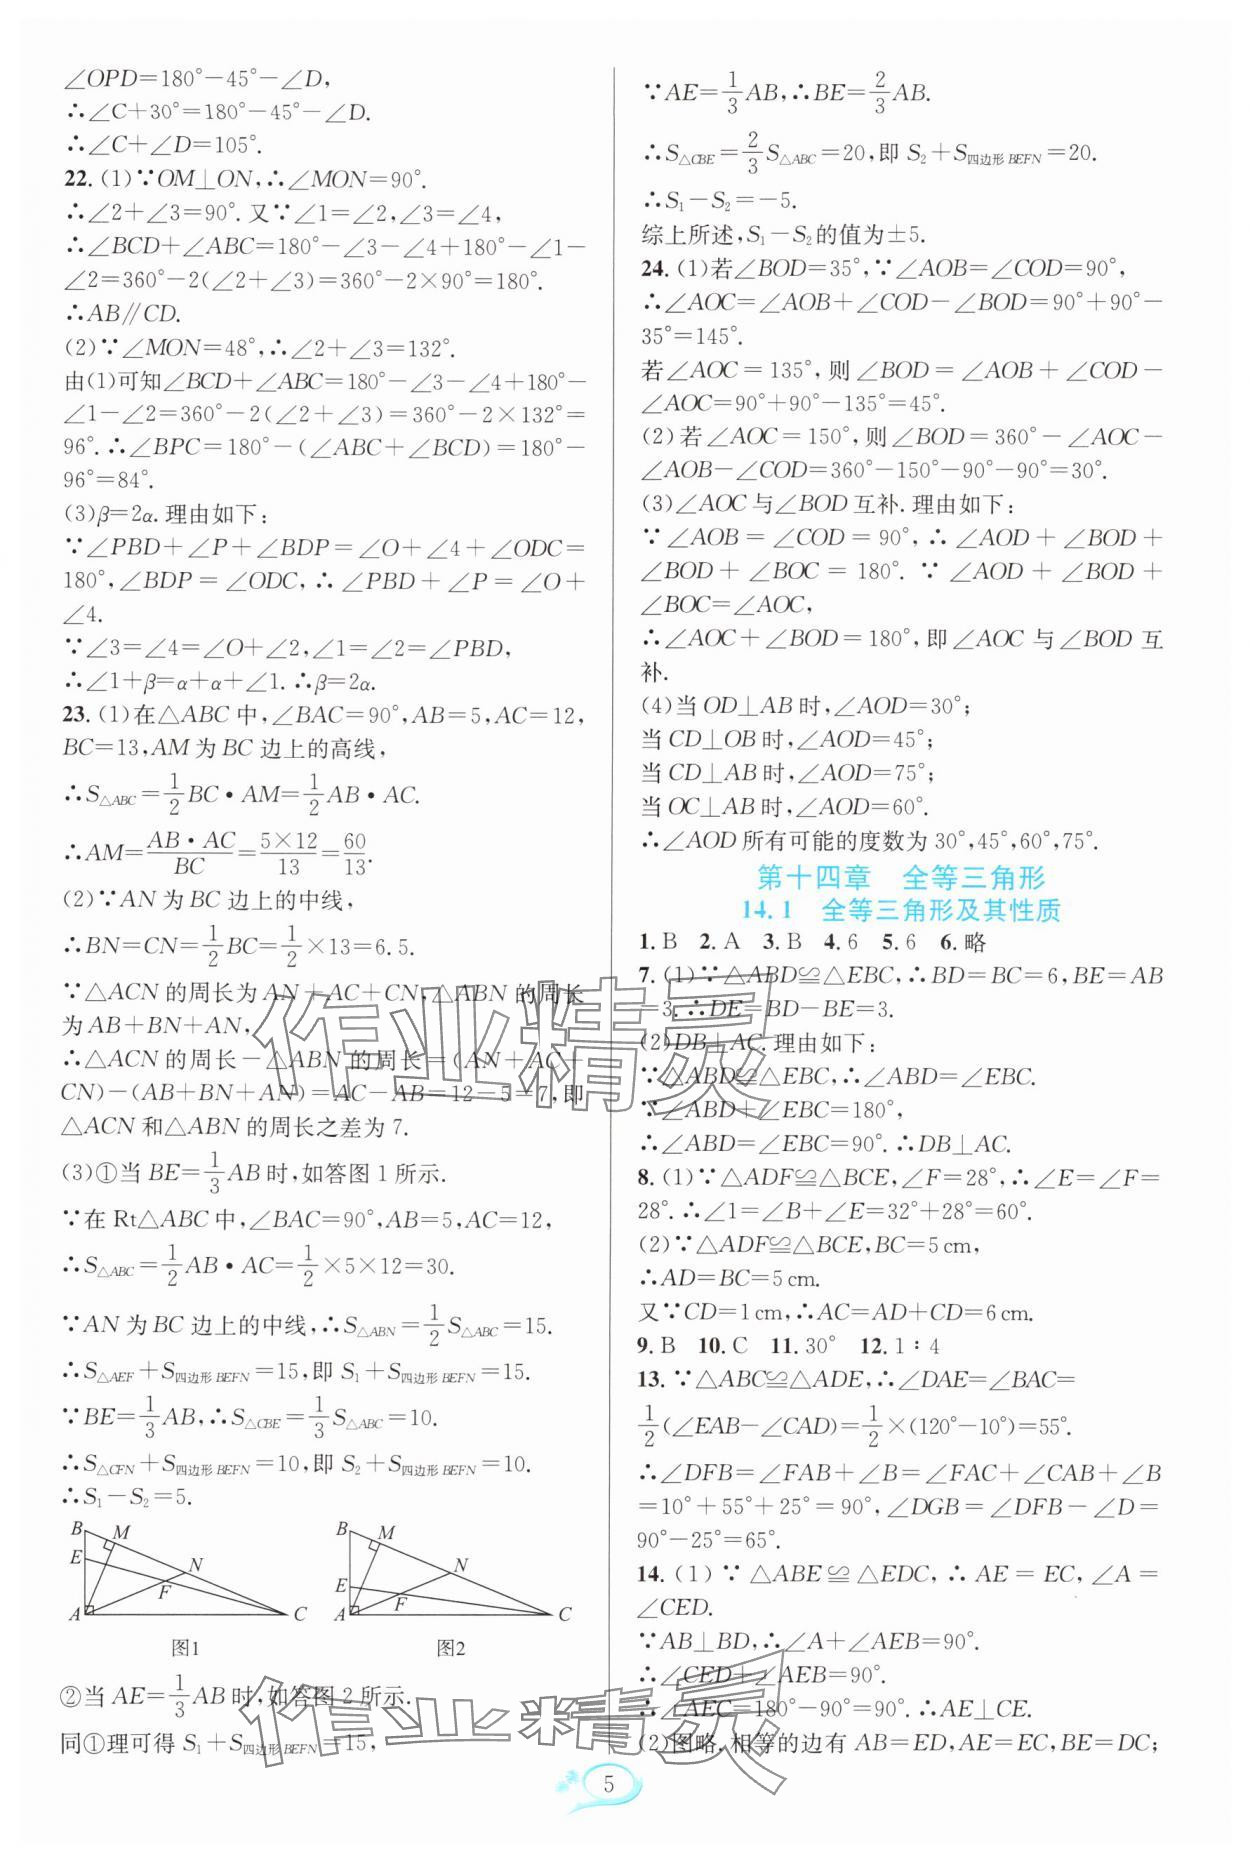 ∠OPD=180°-45°-∠D,
∴∠C+30°=180°-45°-∠D.
∴∠C+∠D=105°.
22.(1)∵OM⊥ON,∴∠MON=90°.
∴∠2+∠3=90°.又∵∠1=∠2,∠3=∠4,
∴∠BCD+∠ABC=180°-∠3-∠4+180°-∠1-
∠2=360°-2(∠2+∠3)=360°-2×90°=180°.
∴AB∥CD.
(2)∵∠MON=48°,∴∠2+∠3=132°.
由(1)可知∠BCD+∠ABC=180°-∠3-∠4+180°-
∠1-∠2=360°-2(∠2+∠3)=360°-2×132°=
96°.∴∠BPC=180°-(∠ABC+∠BCD)=180°-
96°=84°.
(3)β=2α.理由如下:
∵∠PBD+∠P+∠BDP=∠O+∠4+∠ODC=
180°,∠BDP=∠ODC,∴∠PBD+∠P=∠O+
∠4.
∵∠3=∠4=∠O+∠2,∠1=∠2=∠PBD,
∴∠1+β=α+α+∠1.∴β=2α.
23.(1)在△ABC中,∠BAC=90°,AB=5,AC=12,
BC=13,AM为BC边上的高线,
∴S△ABC=1/2BC·AM=1/2AB·AC.
∴AM=AB·AC/BC=5×12/13=60/13.
(2)∵AN为BC边上的中线,
∴BN=CN=1/2BC=1/2×13=6.5.
∵△ACN的周长为AN+AC+CN,△ABN的周长
为AB+BN+AN,
∴△ACN的周长-△ABN的周长=(AN+AC+
CN)-(AB+BN+AN)=AC-AB=12-5=7,即
△ACN和△ABN的周长之差为7.
(3)①当BE=1/3AB时,如答图1所示.
∵在Rt△ABC中,∠BAC=90°,AB=5,AC=12,
∴S△ABC=1/2AB·AC=1/2×5×12=30.
∵AN为BC边上的中线,∴S△ABN=1/2S△ABC=15.
∴S△AEF+S四边形BEFN=15,即S1+S四边形BEFN=15.
∵BE=1/3AB,∴S△CBE=1/3S△ABC=10.
∴S△CFN+S四边形BEFN=10,即S2+S四边形BEFN=10.
∴S1-S2=5.
B M E N F A C
图1
B M N E F A C
图2
②当AE=1/3AB时,如答图2所示.
同①理可得S1+S四边形BEFN=15,
∵AE=1/3AB,∴BE=2/3AB.
∴S△CBE=2/3S△ABC=20,即S2+S四边形BEFN=20.
∴S1-S2=-5.
综上所述,S1-S2的值为±5.
24.(1)若∠BOD=35°,∵∠AOB=∠COD=90°,
∴∠AOC=∠AOB+∠COD-∠BOD=90°+90°-
35°=145°.
若∠AOC=135°,则∠BOD=∠AOB+∠COD-
∠AOC=90°+90°-135°=45°.
(2)若∠AOC=150°,则∠BOD=360°-∠AOC-
∠AOB-∠COD=360°-150°-90°-90°=30°.
(3)∠AOC与∠BOD互补.理由如下:
∵∠AOB=∠COD=90°,∴∠AOD+∠BOD+
∠BOD+∠BOC=180°.∵∠AOD+∠BOD+
∠BOC=∠AOC,
∴∠AOC+∠BOD=180°,即∠AOC与∠BOD互
补.
(4)当OD⊥AB时,∠AOD=30°;
当CD⊥OB时,∠AOD=45°;
当CD⊥AB时,∠AOD=75°;
当OC⊥AB时,∠AOD=60°.
∴∠AOD所有可能的度数为30°,45°,60°,75°.
第十四章 全等三角形
14.1 全等三角形及其性质
1.B 2.A 3.B 4.6 5.6 6.略
7.(1)∵△ABD≌△EBC,∴BD=BC=6,BE=AB
=3.∴DE=BD-BE=3.
(2)DB⊥AC.理由如下:
∵△ABD≌△EBC,∴∠ABD=∠EBC.
∵∠ABD+∠EBC=180°,
∴∠ABD=∠EBC=90°.∴DB⊥AC.
8.(1)∵△ADF≌△BCE,∠F=28°,∴∠E=∠F=
28°.∴∠1=∠B+∠E=32°+28°=60°.
(2)∵△ADF≌△BCE,BC=5 cm,
∴AD=BC=5 cm.
又∵CD=1 cm,∴AC=AD+CD=6 cm.
9.B 10.C 11.30° 12.1∶4
13.∵△ABC≌△ADE,∴∠DAE=∠BAC=
1/2(∠EAB-∠CAD)=1/2×(120°-10°)=55°.
∴∠DFB=∠FAB+∠B=∠FAC+∠CAB+∠B
=10°+55°+25°=90°,∠DGB=∠DFB-∠D=
90°-25°=65°.
14.(1)∵△ABE≌△EDC,∴AE=EC,∠A=
∠CED.
∵AB⊥BD,∴∠A+∠AEB=90°.
∴∠CED+∠AEB=90°.
∴∠AEC=180°-90°=90°.∴AE⊥CE.
(2)图略.相等的边有AB=ED,AE=EC,BE=DC;
作业精灵
作业精灵
5